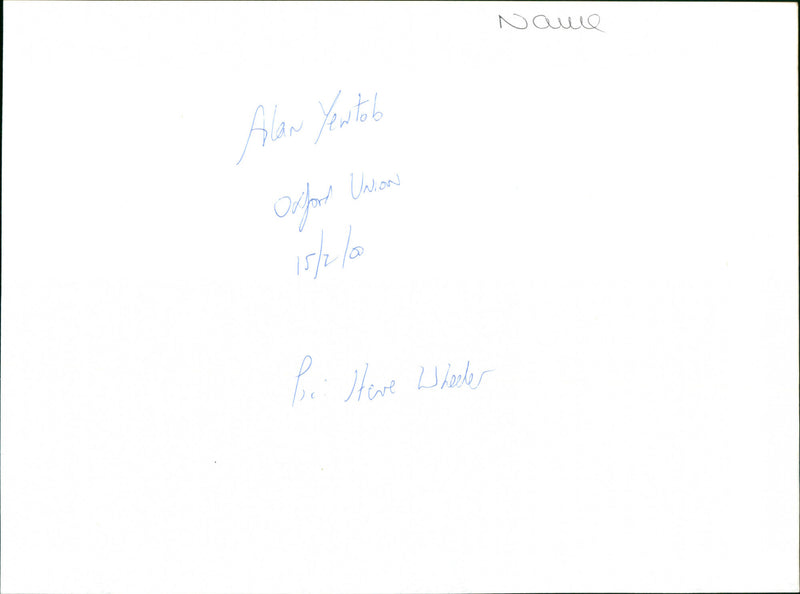 Name
Alan Yentob
Oxford Union
15/2/00
Pic: Steve Wheeler